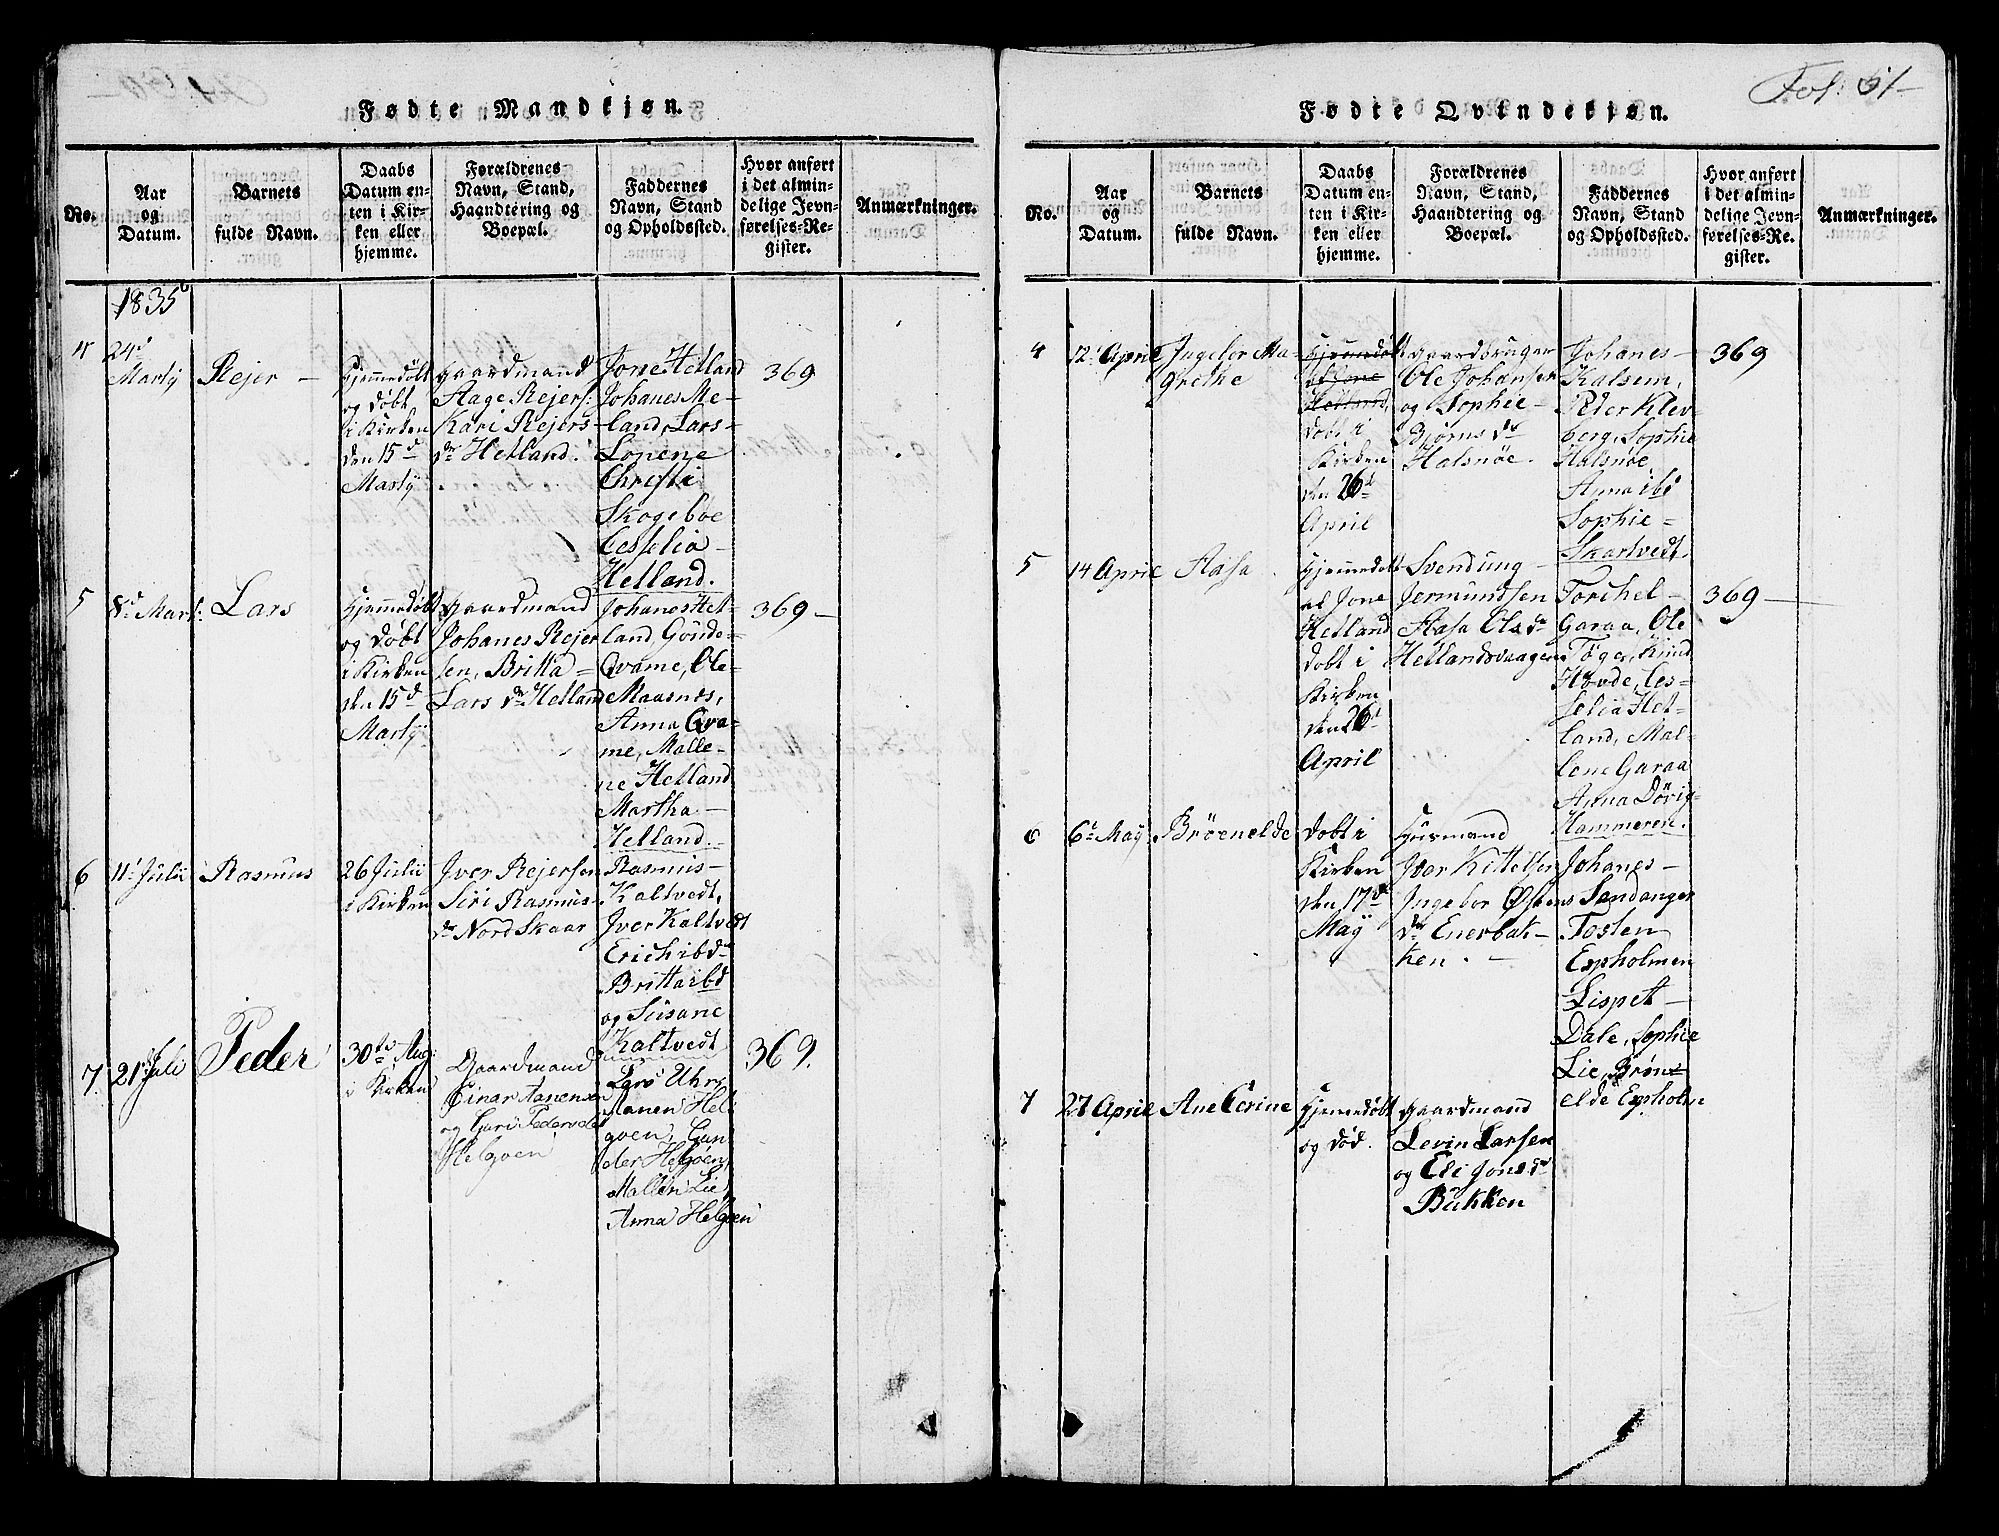 Fol: 51
Fødte Mandkjøn.
No.
Aar
og
Datum.
Barnets
fulde Navn.
Daabs
Datum en-
ten i Kir-
ken eller
hjemme.
Forældrenes
Navn, Stand,
Haandtering og
Boepæl.
Faddernes
Navn, Stand
og Opholdssted.
Hvor anført
i det almin-
delige Jevn-
førelses-Re-
gister.
Anmærkninger.
1835
4
24d
Martÿ
Rejer
Hjemmedøbt
og døbt
i Kirken
den 15d
Martÿ
Gaardmand
Aage Rejers:
Kari Rejers
dr Hetland.
Jone Hetland
Johanes Me-
land, Lars
Lopene
Christi
Skogebøe
Cesselia
Hetland.
369
5
8d Mart:
Lars
Hjemmedøbt
og døbt
i Kirken
den 15d
Martÿ
Gaardmand
Johanes Rejer
sen, Britta
Lars dr Hetland
Johanes Het-
land, Gønde-
Qvame, Ole
Maasnes,
Anna Qva-
me, Malle-
ne Hetland
Martha
Hetland.
369
6
11t Julii
Rasmus
26 Julii
i Kirken
Iver Rejersen
Siri Rasmus-
dr Nord Skaar
Rasmus
Kaltvedt,
Iver Kaltvedt
Erich ibd
Britta ibd
og Susane
Kaltvedt
7
21 Juli
Peder
30te Aug:
i Kirken
Gaardmand
Einar Aanensen
og Guri Pedersdr
Helgøen
Lars Uhr,
Aanen Hel
gøen, Gun
der Helgøen,
Mallin Lie,
Anna Helgøen
369.
Fødte Qvindekjøn.
No.
Aar
og
Datum.
Barnets
fulde Navn.
Daabs
Datum en-
ten i Kir-
ken eller
hjemme.
Forældrenes
Navn, Stand,
Haandtering og
Boepæl.
Faddernes
Navn, Stand
og Opholdssted.
Hvor anført
i det almin-
delige Jevn-
førelses-Re-
gister.
Anmærkninger.
4
12t April
Ingebor Ma-
grethe
Hjemmedøbt
af Jone
Hetland,
døbt i
Kirken
den 26d
April
Gaardbruger
Ole Johansen
og Sophie
Bjørns dr
Halsnøe.
Johanes
Kalsem,
Peder Klev
berg, Sophie
Halsnøe,
Anna ibd
Sophie
Skartvedt.
369
5
14 April
Aasa
Hjemmedøbt
af Jone
Hetland
døbt i
Kirken
den 26d
April
Svendung
Jermundsen
Aasa Ols dr
Hetlandsvaagen
Torchel
Garaa, Ole
Tøge, Knud
Høvde, Ces-
selia Het-
land, Mal-
lene Garaa
Anna Døvig
Hammeren.
369
6
6t May
Brøenelde
Døbt i
Kirken
den 17d
May
Huusmand
Ivar Kittelsen
Ingebor Østens
dr Enerbak-
ken.
Johanes
Sandanger
Tosten
Expholmen
Lispet
Dale, Sophie
Lie, Brøn-
elde Expholm
7
27 April
Ane Cerine
Hjemmedøbt
og død.
Gaardmand
Levin Larsen
og Eli Jonsdr
Bakken